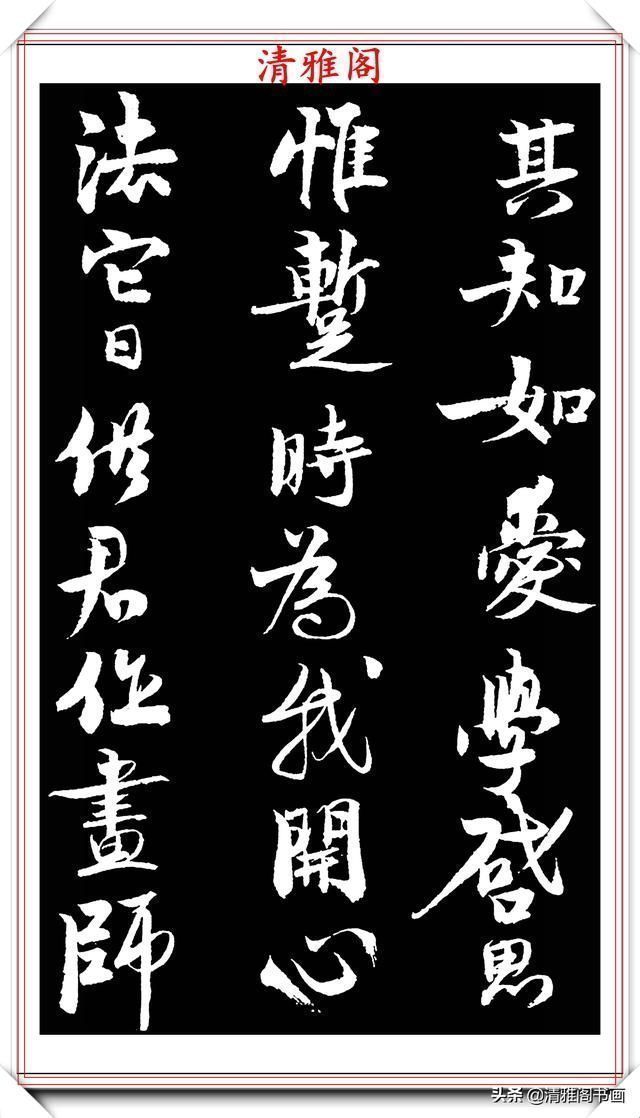 清雅阁
其知如愛學啓思
惟蹔時為我開心
法它日供君作畫師
头条@清雅阁书画